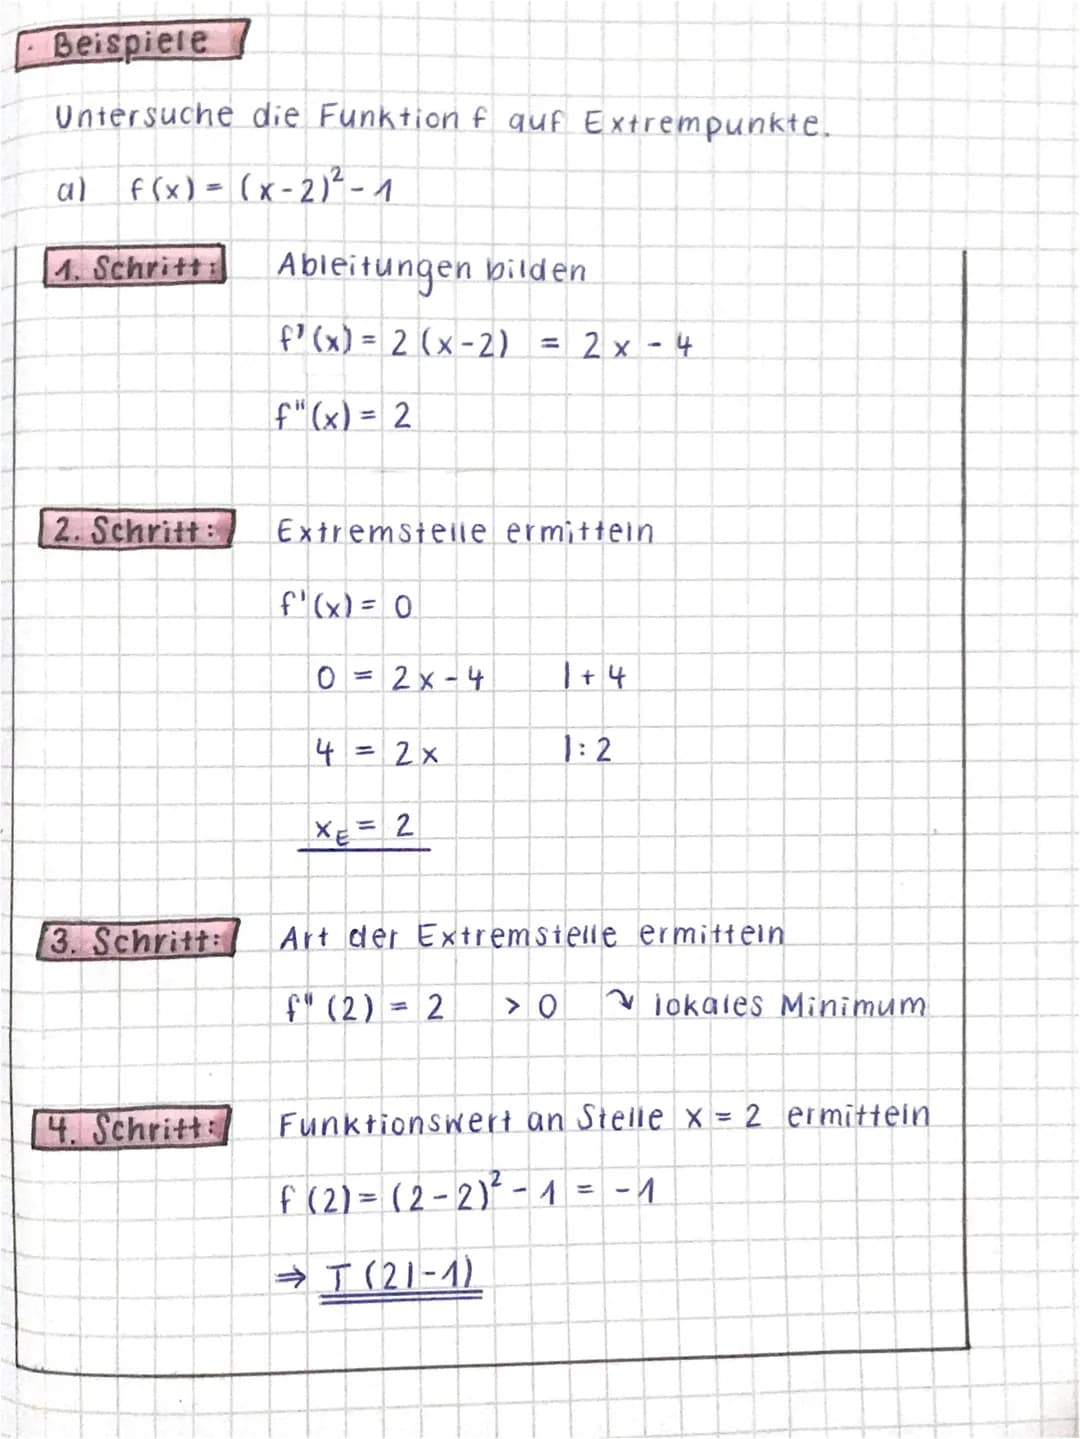 · Beispiele
Untersuche die Funktion f auf Extrempunkte.
a) f(x) = (x-2)² - 1
1. Schritt: Ableitungen bilden
f'(x) = 2 (x-2) = 2x - 4
f"(x) = 2
2. Schritt: Extremstelle ermitteln
f'(x) = 0
0 = 2x - 4 | + 4
4 = 2x | : 2
x_E = 2
3. Schritt: Art der Extremstelle ermitteln
f" (2) = 2 > 0 ↷ lokales Minimum
4. Schritt: Funktionswert an Stelle x = 2 ermitteln
f (2) = (2-2)² - 1 = -1
⇒ T (2|-1)